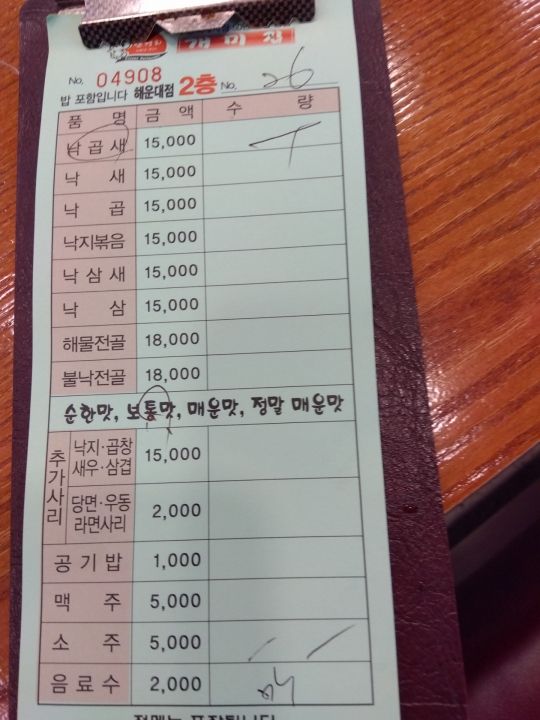 개미집
No. 04908
밥 포함입니다 해운대점 2층 No. 26
품 명 금 액 수 량
낙곱새 15,000
낙 새 15,000
낙 곱 15,000
낙지볶음 15,000
낙 삼 새 15,000
낙 삼 15,000
해물전골 18,000
불낙전골 18,000
순한맛, 보통맛, 매운맛, 정말 매운맛
추가사리 낙지·곱창
새우·삼겹 15,000
당면·우동
라면사리 2,000
공 기 밥 1,000
맥 주 5,000
소 주 5,000
음 료 수 2,000